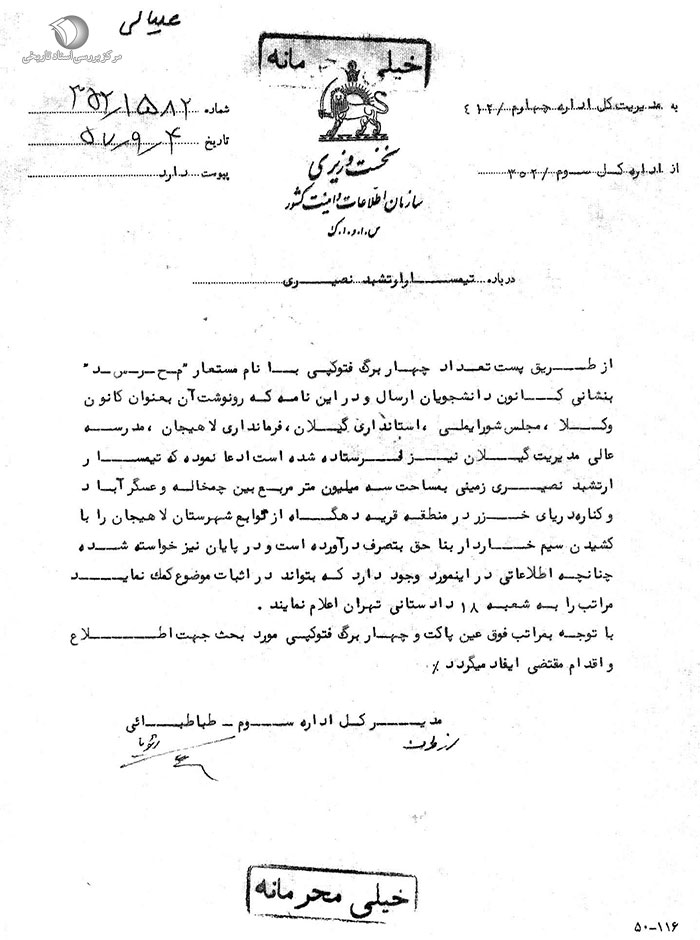 مرکز بررسی اسناد تاریخی
خیلی محرمانه
به مدیریت کل اداره چهارم /۴۱۲
شماره ۳۵۲/۱۵۸۲
از اداره کل سوم /۳۵۲
تاریخ ۵۷/۹/۴
پیوست دارد
نخست وزیری
سازمان اطلاعات و امنیت کشور
س.ا.و.ا.ک
درباره تیمسار ارتشبد نصیری
از طریق پست تعداد چهار برگ فتوکپی با نام مستعار "م-ح-ر-س-د"
بنشانی کانون دانشجویان ارسال و در این نامه که رونوشت آن بعنوان کانون
وکلا ، مجلس شورایملی ، استانداری گیلان، فرمانداری لاهیجان ، مدرسه
عالی مدیریت گیلان نیز فرستاده شده است ادعا نموده که تیمسار
ارتشبد نصیری زمینی بمساحت سه میلیون متر مربع بین چمخاله و عسگرآباد
و کناره دریای خزر در منطقه قریه دهگاه از توابع شهرستان لاهیجان را با
کشیدن سیم خاردار بنا حق بتصرف درآورده است و در پایان نیز خواسته شده
چنانچه اطلاعاتی در اینمورد وجود دارد که بتواند در اثبات موضوع کمک نماید
مراتب را به شعبه ۱۸ دادستانی تهران اعلام نمایند .
با توجه بمراتب فوق عین پاکت و چهار برگ فتوکپی مورد بحث جهت اطلاع
و اقدام مقتضی ایفاد میگردد ٪
مدیر کل اداره سوم - طباطبائی
خیلی محرمانه
۵۰-۱۱۶